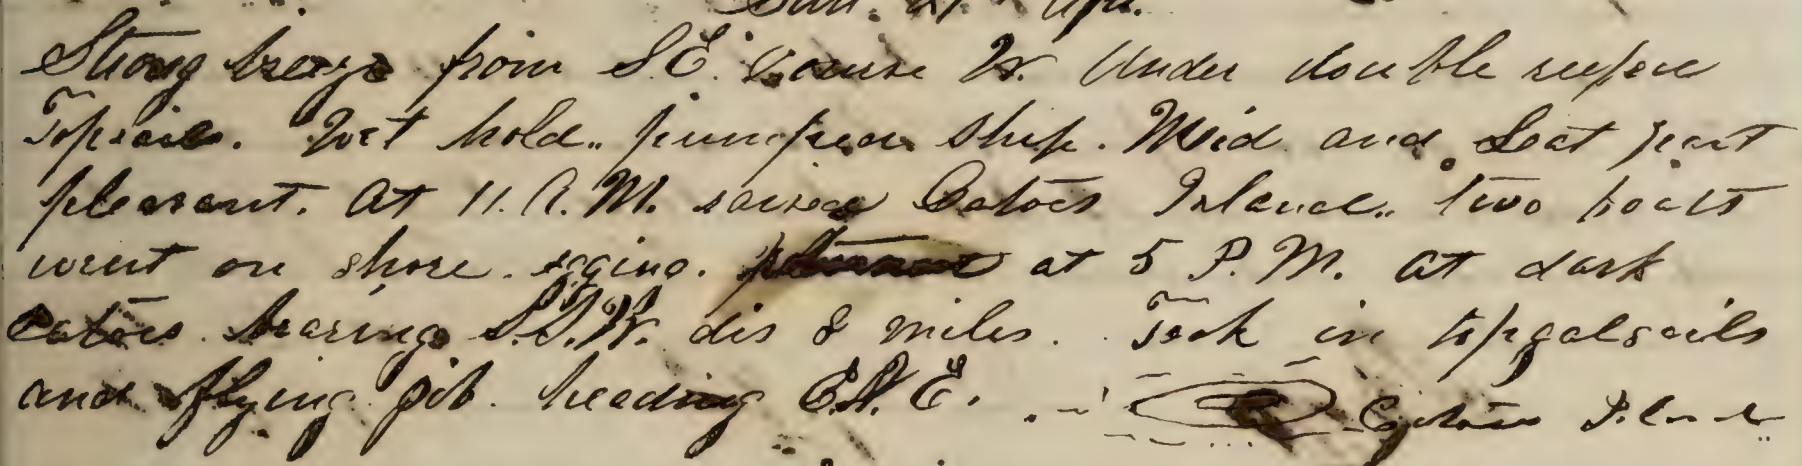 Strong breeze from S.E. course W. Under double reefed
Topsails. Wet hold.. pumped ship. Mid and Last part
pleasant. At 11. A.M. raised Catoes Island.. two boats
went on shore. eging. at 5 P.M. At dark
Catoes. bearing S.S.W. dis 8 miles. Took in topgalsails
and flying jib. heading E.N.E. Catoes Island